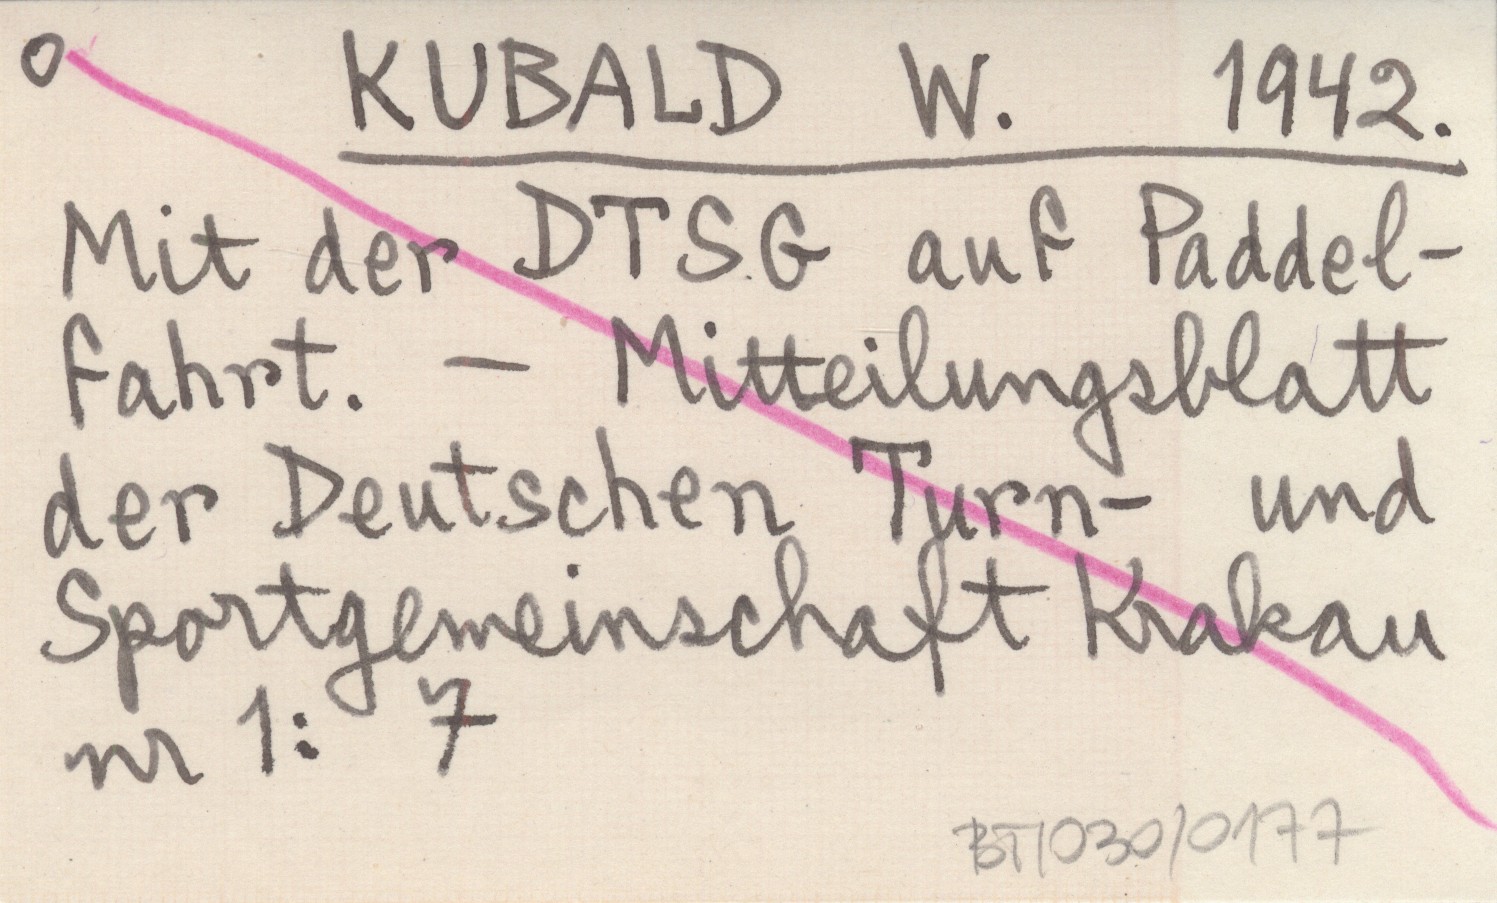 O KUBALD W. 1942.
Mit der DTSG auf Paddel-
fahrt. — Mitteilungsblatt
der Deutschen Turn- und
Sportgemeinschaft Krakau
nr 1: 7
BT/030/0177